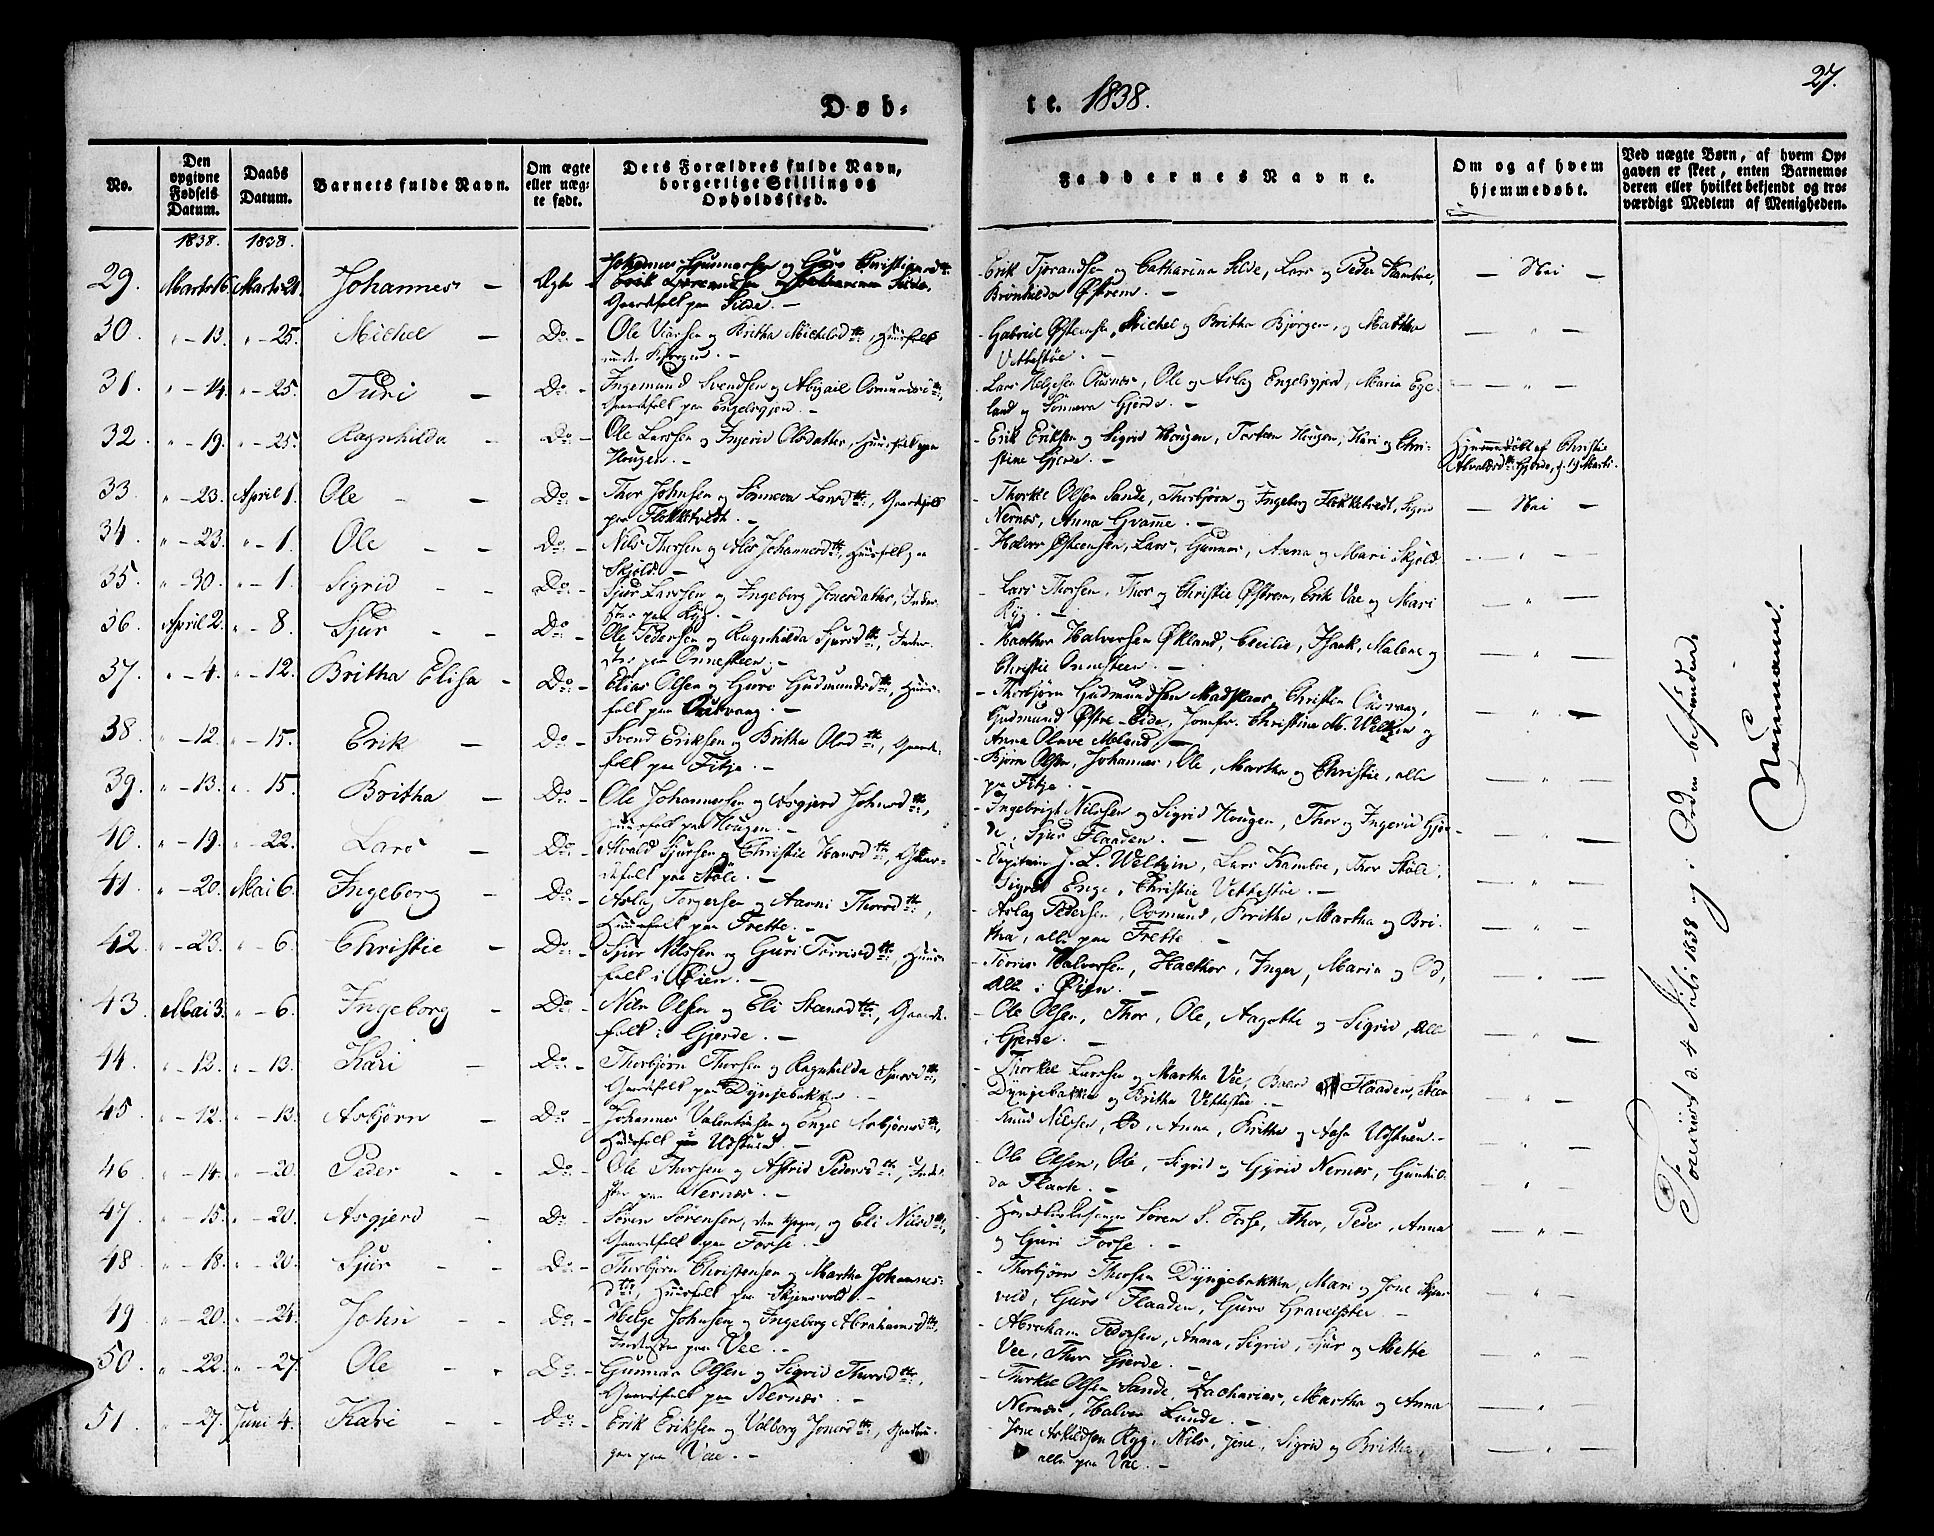 27.
Døb-
te. 1838.
No.
Den opgivne Fødsels Datum.
Daabs Datum.
Barnets fulde Navn.
Om ægte eller uægte født.
Dets Forældres fulde Navn, borgerlige Stilling og Opholdssted.
Faddernes Navne.
Om og af hvem hjemmedøbt.
Ved uægte Børn, af hvem Opgaven er skeet, enten Barnemoderen eller hvilket bekjendt og troværdigt Medlem af Menigheden.
1838. 1838.
29. Marts 16. Marts 21. Johannes — Ægte — Johannes Gunnarsen og Guro Christiansdtr.
Gaardfolk paa Silde. —
Erik Tjerandsen og Catharina Silde, Lars og Peder Kambve,
Brønhilda Østrem. —
— Nei —
30. " - 13. " - 25. Michel — Do. — Ole Larsen og Britha Michelsdtr., Huusfolk
Gabriel Østensen, Michel og Britha Bjørgen, og Martha
Vettestøe. —
— " —
31. " - 14. " - 25. Turi — Do. — Ingemund Svendsen og Abigail Osmundsdtr.,
Gaardfolk paa Engelsgjerd. —
Lars Helgesen Ousnes, Ole og Aslag Engelsgjerd, Maria Ege-
land og Sønneva Gjerde. —
— " —
32. " - 19. " - 25. Ragnhilda — Do. — Ole Larsen og Ingerid Olsdatter, Huusfolk paa
Hougen. —
Erik Eriksen og Sigrid Hougen, Torsten Hougen, Kari og Chri-
stine Gjerde. —
Hjemmedøbt af Christie
Gjerde, d. 19 Marts.
33. " - 23. April 1. Ole — Do. — Thor Johnsen og Sønneva Larsdtr., Gaardfolk
paa Flokketvedt. —
Thorkel Olsen Sande, Thorbjørn og Ingeborg Flokketvedt, Sigrid
Nernæs, Anna Gvame. —
— Nei —
34. " - 23. " - 1. Ole — Do. — Nils Thorsen og Ales Johannesdtr., Huusfolk paa
Skjold. —
Halvor Østensen, Lars, Gunnar, Anna og Mari Skjold.
— " —
35. " - 30. " - 1. Sigrid — Do. — Sjur Larsen og Ingeborg Jonesdatter, Inder-
ster paa Ryg. —
Lars Thorsen, Thor og Christie Østrem, Erik Vae og Mari
Ryg. —
— " —
36. April 2. " - 8. Sjur — Do. — Ole Pedersen og Ragnhilda Sjursdtr., Inder-
ster paa Onnesteen. —
Haethor Halvorsen Økland, Cecilie, Isaak, Malene og
Christie Onnesteen. —
— " —
37. " - 4. " - 12. Britha Elisa — Do. — Elias Olsen og Guro Gudmundsdtr., Huus-
folk paa Ousvaag. —
Thorbjørn Gudmundsen Madskaar, Christen Ousvaag,
Gudmund Østre-Eide, Jomfr. Christine M. Weltzin og
Anna Olave Meland —
— " —
38. " - 12. " - 15. Erik — Do. — Svend Eriksen og Britha Olsdtr., Gaard-
folk paa Fitje. —
Bjørn Olsen, Johannes, Ole, Martha og Christie, alle
paa Fitje. —
— " —
39. " - 13. " - 15. Britha — Do. — Ole Johannesen og Asgjerd Johnsdtr.,
Huusfolk paa Hougen. —
Ingebrigt Nilssen og Sigrid Hougen, Thor og Ingerid Gjer-
de, Sjur Flaaden. —
— " —
40. " - 19. " - 22. Lars — Do. — Alvald Sjursen og Christie Hansdtr.,
paa Støle. —
Capitain J. L. Weltzin, Lars Kambve, Thor Støle,
Sigrid Enge, Christie Vettestøe. —
— " —
41. " - 20. Mai 6. Ingeborg — Do. — Aslag Torgersen og Aarni Thorsdtr.,
Huusfolk paa Frette. —
Aslag Pedersen, Osmund, Britha, Martha og Bri-
tha, alle paa Frette. —
— " —
42. " - 23. " - 6. Christie — Do. — Sjur Nilssen og Guri Torrisdtr., Huus-
folk i Øien. —
Torris Halvorsen, Haethor, Inger, Maria og Od,
Alle i Øien. —
— " —
43. Mai 3. " - 6. Ingeborg — Do. — Nils Olsen og Eli Steensdtr., Gaard-
folk i Gjerde. —
Ole Olsen, Thor, Ole, Aagothe og Sigrid, Alle
i Gjerde. —
— " —
44. " - 12. " - 13. Kari — Do. — Thorbjørn Thorsen og Ragnhilda Sjursdtr.,
Gaardfolk paa Dyngebakken. —
Thorkel Larsen og Martha Vee, Baard Flaaden, Steen
Dyngebakken og Britha Vettestøe. —
— " —
45. " - 12. " - 13. Asbjørn — Do. — Johannes Valentinsen og Engel Asbjørnsdtr.,
Huusfolk i Udstuen. —
Knud Nilssen, Od, Anna, Britha og Aasa Udstuen. —
— " —
46. " - 14. " - 20. Peder — Do. — Ole Thorsen og Astrid Pedersdtr., Inder-
ster paa Nernæs. —
Ole Olsen, Ole, Sigrid og Gyrid Nernæs, Gunhil-
da Flaate. —
— " —
47. " - 15. " - 20. Asgjerd — Do. — Søren Sørensen, den Yngre, og Eli Nilsdtr.,
Gaardfolk paa Forse. —
Søren S. Forse, Thor, Peder, Anna
og Guri Forse. —
— " —
48. " - 18. " - 20. Sjur — Do. — Thorbjørn Christensen og Martha Johannes-
dtr., Huusfolk paa Skjensvold. —
Thorbjørn Thorsen Dyngebakken, Mari og Jone Skjens-
vold, Guro Flaaden, Guro Graveister. —
— " —
49. " - 20. " - 24. John — Do. — Helge Johnsen og Ingeborg Abrahamsdtr.,
Inderster paa Vee. —
Abraham Pedersen, Anna, Sigrid, Sjur og Mette
Vee, Thor Gjerde. —
— " —
50. " - 22. " - 27. Ole — Do. — Gunnar Olsen og Sigrid Thorsdtr.,
Gaardfolk paa Nernæs. —
Thorkel Olsen Sande, Zacharias, Martha og Anna
Nernæs, Halvor Lunde. —
— " —
51. " - 27. Juni 4. Kari — Do. — Erik Eriksen og Valborg Jonesdtr.,
paa Vae. —
Jone Askildsen Ryg, Nils, Jone, Sigrid og Britha,
alle paa Vae. —
— " —
d. 4 Juli 1838 og i Orden befunden.
Naumann.